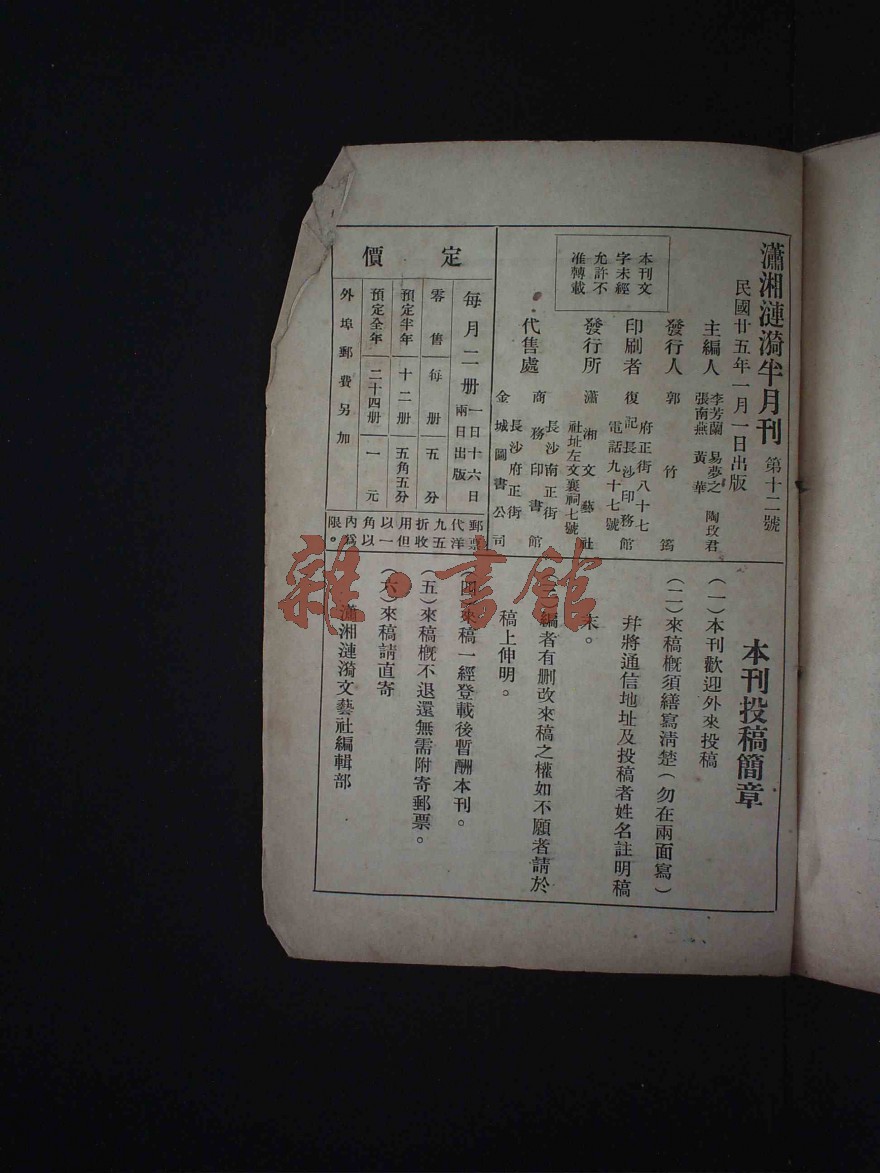 瀟湘漣漪半月刊 第十二號
民國廿五年一月一日出版
主編人 李芳蘭 易夢之 陶玫君
張南燕 黃華
發行人 郭竹筠
印刷者 復記長沙印務館
府正街八十七
電話九十七號
發行所 瀟湘文藝社
社址左文襄祠七號
代售處 商務印書館
長沙南正街
金城圖書公司
長沙府正街
本刊文
字未經
允許不
准轉載
定價
每月二册 一日十六日
兩日出版
零售 每册 五分
預定半年 十二册 五角五分
預定全年 二十四册 一元
外埠郵費另加
郵票
代洋
九五
折收
用但
以一
角以
內爲
限。
本刊投稿簡章
(一)本刊歡迎外來投稿
(二)來稿槪須繕寫清楚(勿在兩面寫)
幷將通信地址及投稿者姓名註明稿
末。
編者有删改來稿之權如不願者請於
稿上伸明。
(四)來稿一經登載後暫酬本刊。
(五)來稿槪不退還無需附寄郵票。
(六)來稿請直寄
瀟湘漣漪文藝社編輯部
雜·書館